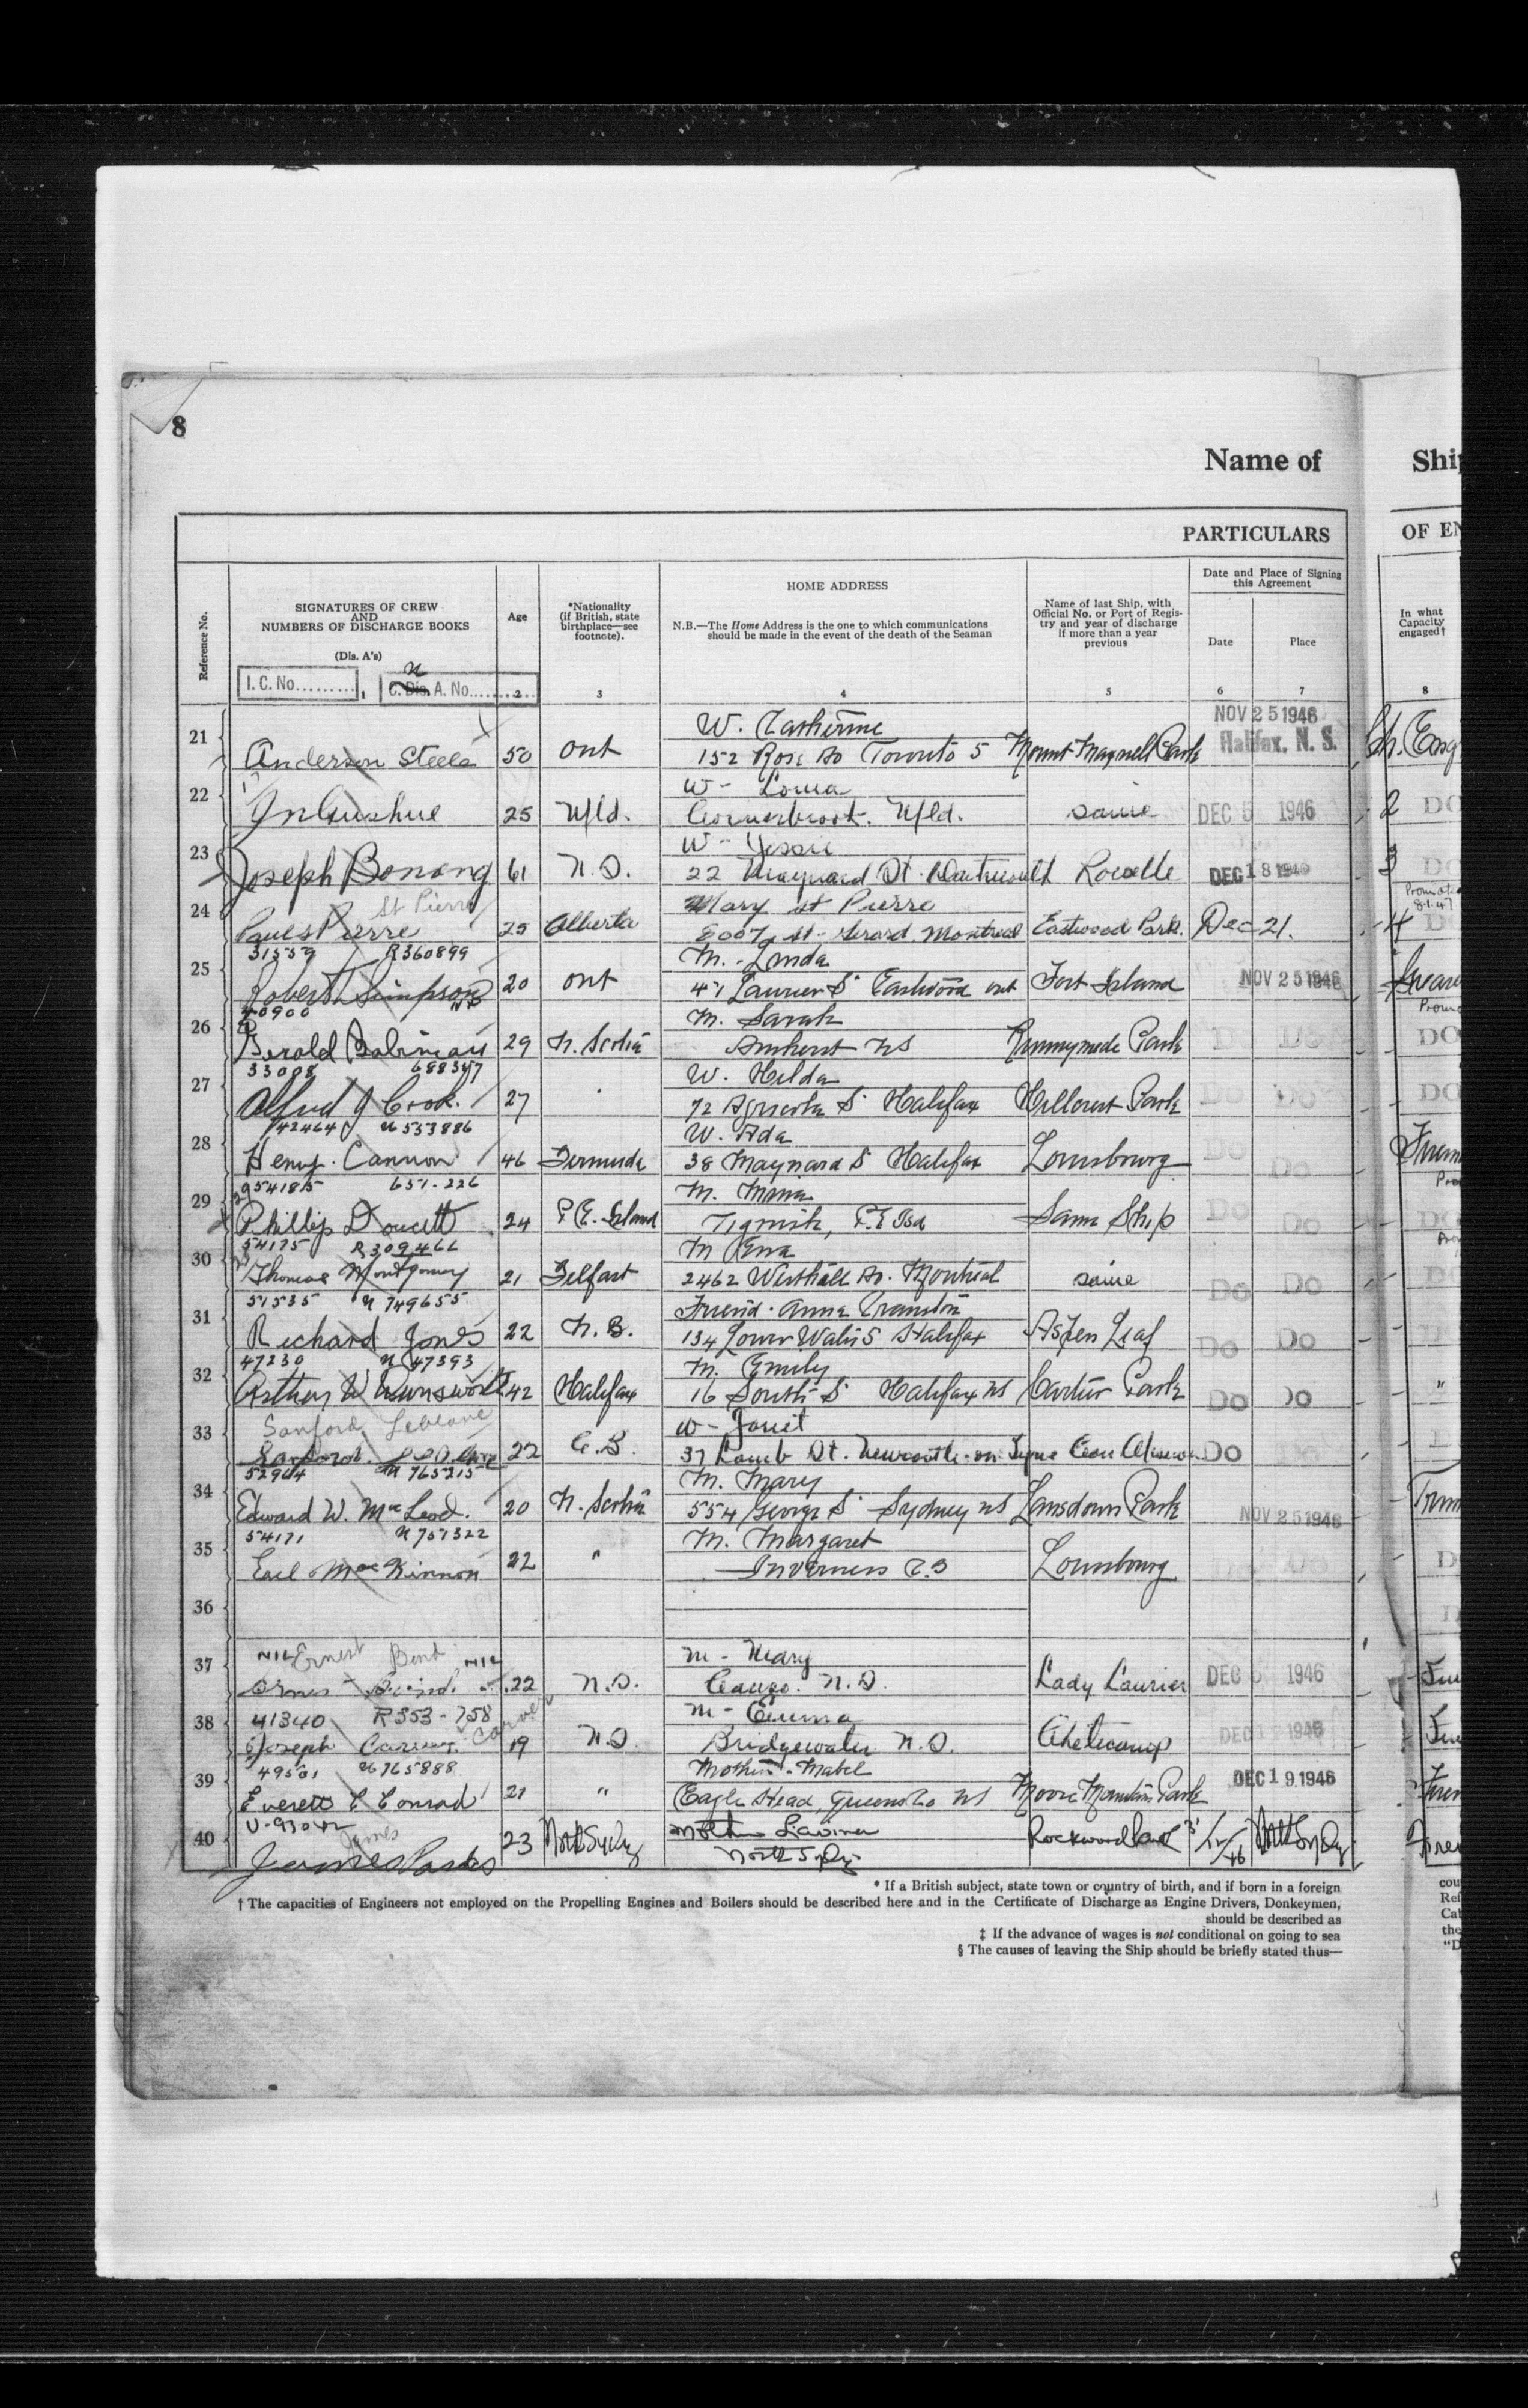 8
Name of
Ship
PARTICULARS
OF EN
Reference No.
SIGNATURES OF CREW
AND
NUMBERS OF DISCHARGE BOOKS
(Dis. A's)
I. C. No.......... 1
C. Dis. A. No.......... 2
Age
*Nationality
(if British, state
birthplace—see
footnote).
3
HOME ADDRESS
N.B.—The Home Address is the one to which communications
should be made in the event of the death of the Seaman
4
Name of last Ship, with
Official No. or Port of Regis-
try and year of discharge
if more than a year
previous
5
Date and Place of Signing
this Agreement
Date
6
Place
7
In what
Capacity
engaged†
8
W. Catherine
NOV 25 1946
21 Anderson Steele 50 Ont 152 Rose Av Toronto 5 Mount Maxwell Park Halifax, N. S. Ch. Eng
W - Lorna
22 25 Nfld. Cornerbrook. Nfld. same DEC 5 1946 2 DO
W - Jessie
23 Joseph Bonang 61 N.S. 22 Maynard St. Dartmouth DEC 18 1946 3 DO
St Pierre
Mary St Pierre
24 Paul St Pierre 25 Alberta St. Gerard. Montreal Eastwood Park. Dec 21. 4
31559 R360899
M. - Linda
25 Robert Simpson 20 Ont 41 Laurier S Eastwood Ont Fort Island NOV 25 1946
40900
M. Sarah
26 Gerald Babineau 29 N. Scotia Amherst NS Runnymede Park Do Do DO
33088 688347
W. Hilda
27 Alfred J Cook. 27 72 Agricola S Halifax Hillcrest Park Do Do DO
42464 N 553886
W. Ada
28 Henry. Cannon 46 Bermuda 38 Maynard S Halifax Louisbourg Do Do
954185 651.226
29 Phillip Doucett 24 P.E. Island Tignish, P.E Isd Same Ship Do Do
54175 R309466
30 Thomas Montgomery 21 Belfast 2462 Av. Montreal same Do Do
51535 N 749655
31 Richard Jones 22 N.B. 134 Lower Water S Halifax Aspen Leaf Do Do
47230 N 47393
M. Emily
32 Arthur W 42 Halifax 16 South S Halifax NS Cartier Park Do Do
Sanford Leblanc
W - Janet
33 22 C.B. 37 Lamb St. Newcastle-on-Tyne Do
52964 N 765215
M. Mary
34 Edward W. MacLeod. 20 N. Scotia 554 George S Sydney NS Lansdown Park NOV 25 1946
54171 N 751322
M. Margaret
35 Earl MacKinnon 22 " Inverness C.B Louisbourg
36
NIL Ernest Bond NIL
M - Mary
37 22 N.S. Canso. N.S. Lady Laurier DEC 1946
41340 R353-758
M - Emma
38 Joseph 19 N.S. Bridgewater N.S. Cheticamp DEC 17 1946
49501 N 765888
Mother - Mabel
DEC 19 1946
39 Everett C Conrad 21 " Eagle Head, Queens Co NS Moose Mountain Park
U-93042
James
Mother Lavinia
40 James Parks 23 North Sydney North Sydney Rockwood Park North Sydney
* If a British subject, state town or country of birth, and if born in a foreign
† The capacities of Engineers not employed on the Propelling Engines and Boilers should be described here and in the Certificate of Discharge as Engine Drivers, Donkeymen,
should be described as
‡ If the advance of wages is not conditional on going to sea
§ The causes of leaving the Ship should be briefly stated thus—